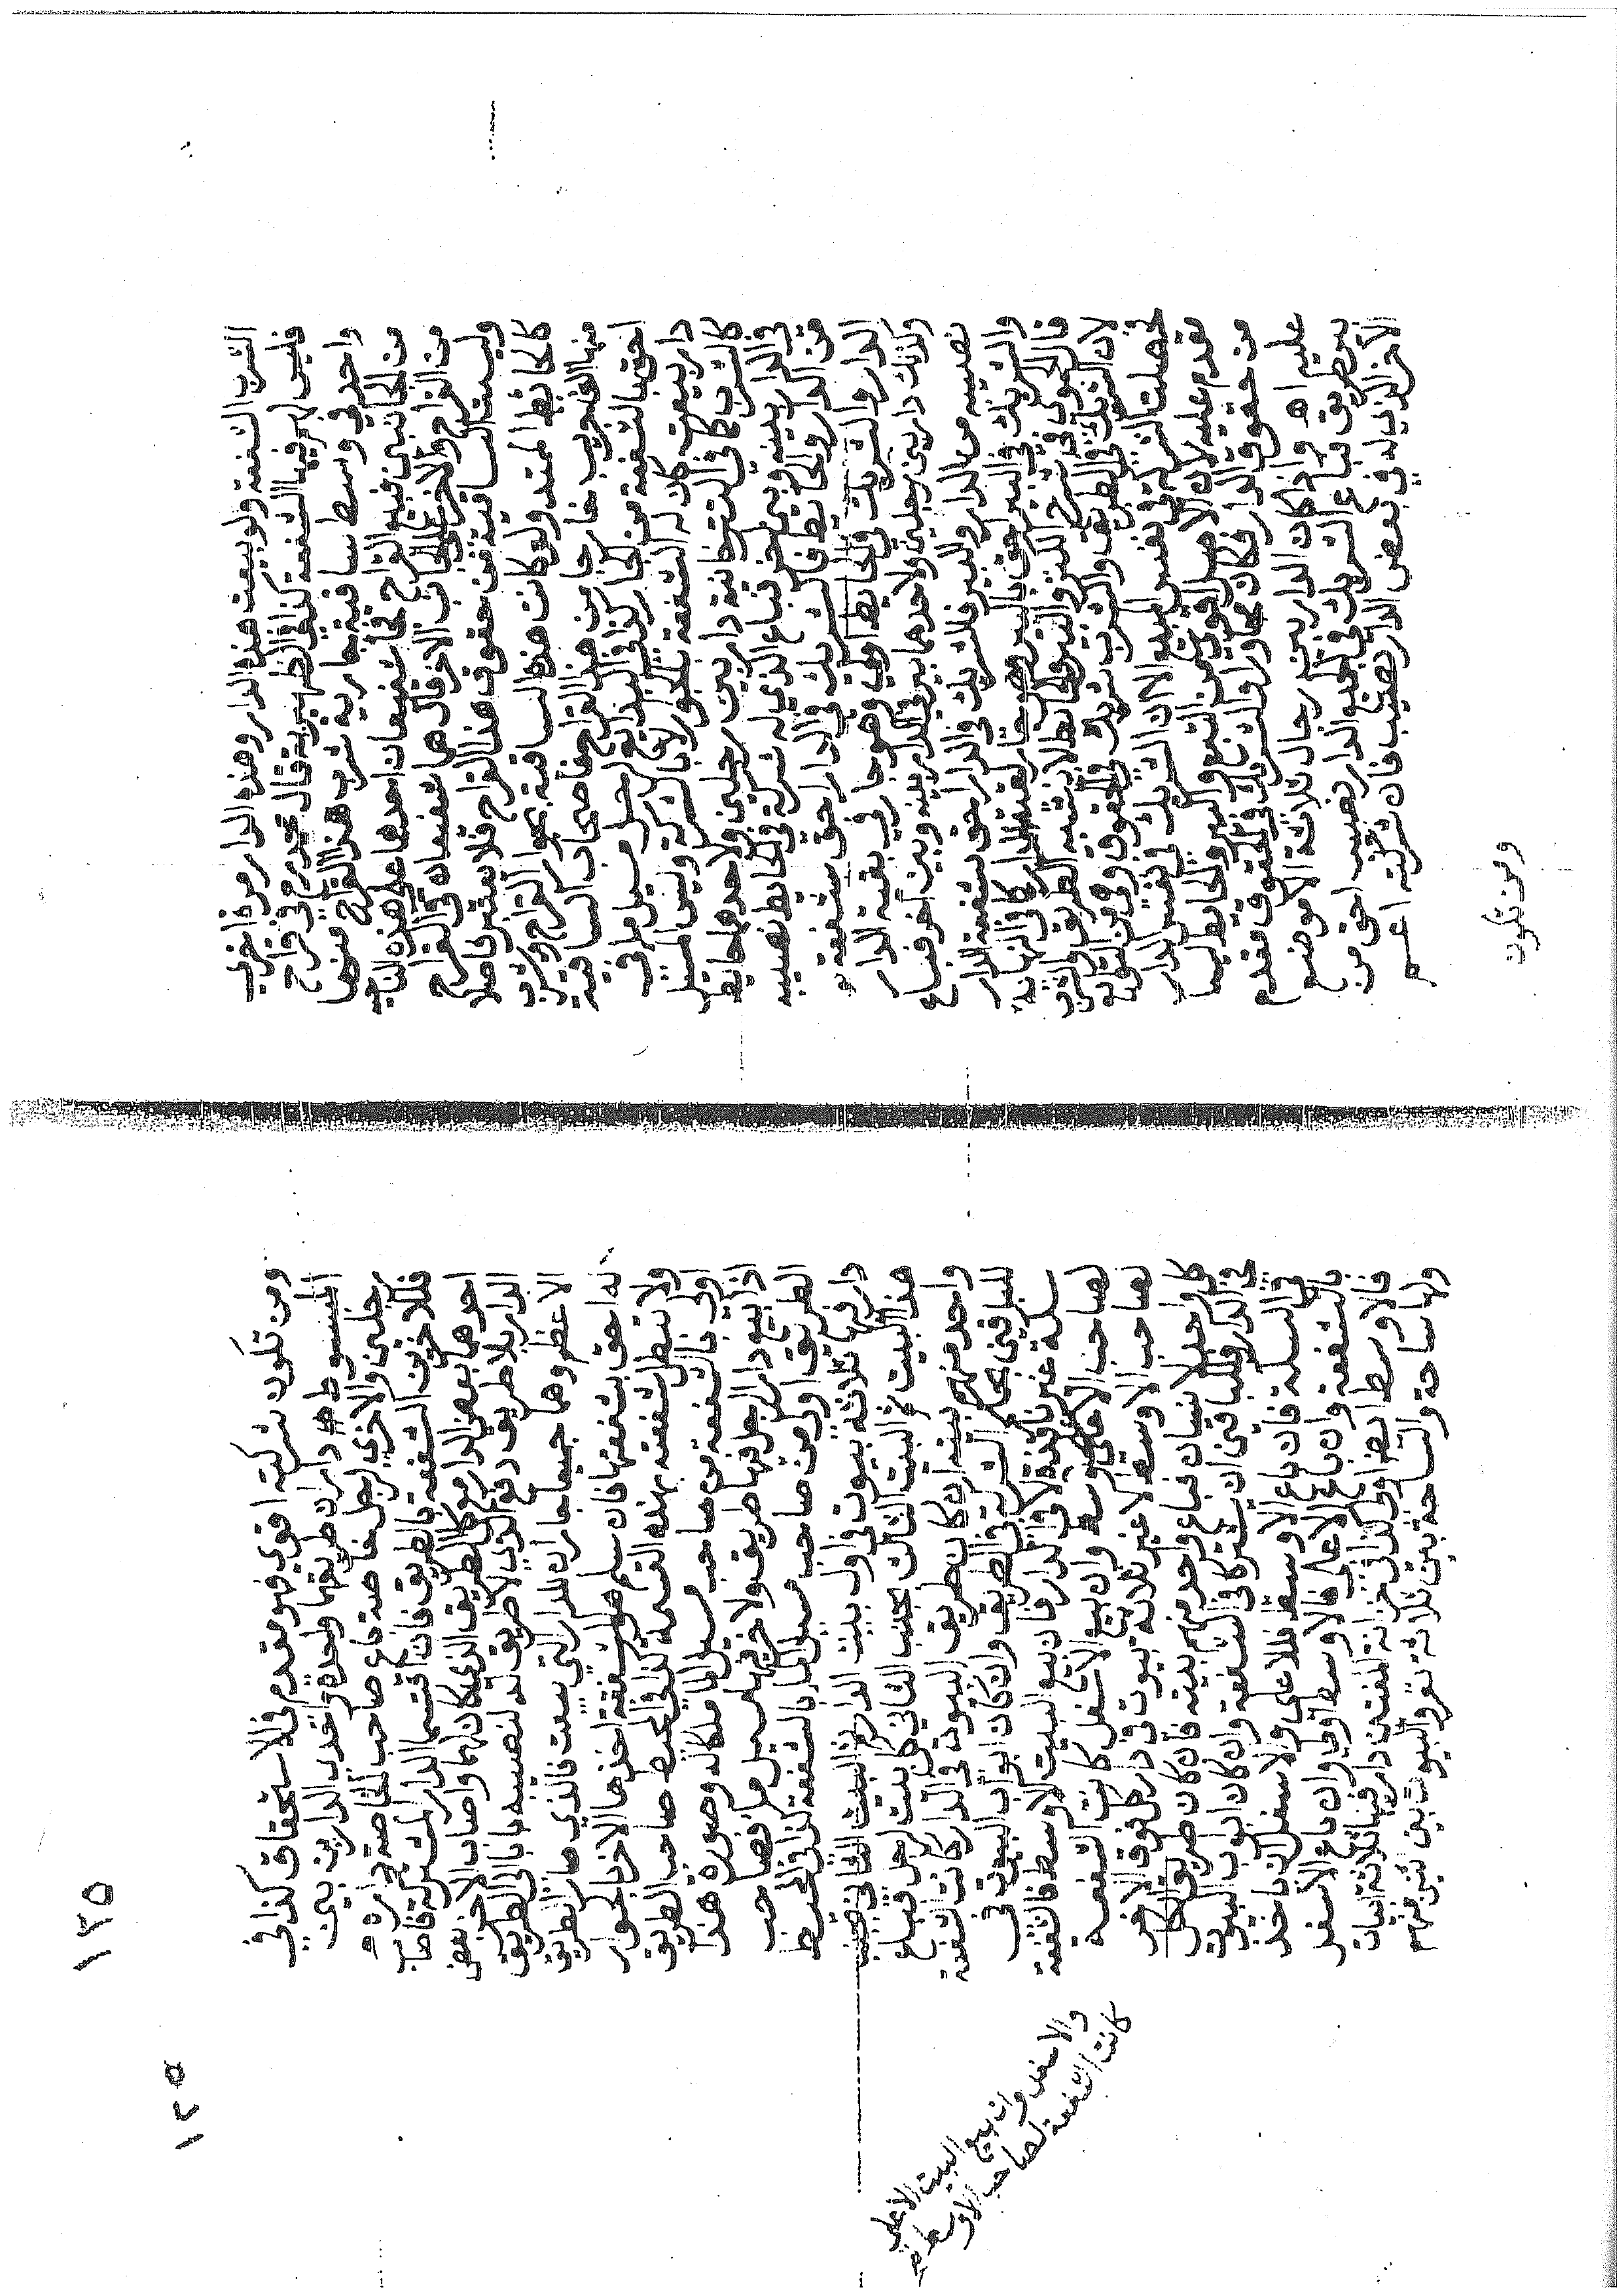 الشرب الشفعة ولو بيعت هذه الدار وهذه الدار مرة اخرى
فليس لهم فيها الشفعة كذا في الظهيرية قال محمد رح في قراح
واحد في وسط ساقية جارية شرب هذا القراح منها
من الجانبين فبيع القراح فجا شفيعان احدهما علي هذه الناحية
من القراح والاخر على الجانب الاخر قال هما شفيعان في القراح
وليست الساقية من حقوق هذا القراح فلا يعتبر فاصلا
كالحائط الممتد ولو كانت هذه الساقية بجوار القراح وشرب
منها الف جريب خارجا من هذا القراح فاصحاب الساقية
احق بالشفعة من الجار كذا في البدايع لرجل مسيل ما في
دار بيعت كان له الشفعة بالجوار لا بالشركة وليس المسيل
كالشرب كذا في التتارخانية دار بين رجلين ولاحدهما حايط
في الدار بينه وبين اخر فباع الذي له شركة في الحايط نصيبه
من الدار والحايط فالشريك في الدار احق بشفعة
الدار والشريك في الحايط اولى وهو جار في بقية الدار
وكذلك دار بين رجلين ولاحدهما بير في الدار بينه وبين اخر فباع
نصيبه من الدار والبير فالشريك في الدار احق بشفعة الدار
والشريك في البير احق بالبير وهو جار لبقية الدار كذا في النهاية
قال الحموي في شرح الكنز والبير والحايط لا يشبه الطريق والشرب
لان الشريك في الطريق والشرب شريك في الحقوق وهي من التوابع
فجعلت الشركة في نفس المبيع الا ان الشريك في نفس الدار
تقدم عليه لان الاصل اقوى من التبع والبير والحايط ليسا
من حقوق الدار فكان جارا والشريك في الحقوق مقدم
عليه اه واذا كان الدار بين رجال ثلاثة الا موضع
بير طريق فباع الشريك في جميع الدار نصيبه احق من
الاخر الذي له في بعض الدار نصيب فان شركته اعم
ومن تكون
١٣٥
١٢٥
ومن تكون شركته اقوى فهو مقدم في الاستحقاق كذا في
المبسوط داران طريقهما واحدة احدى الدارين بين
رجلين والاخرى لرجل خاصة باع صاحب الخاصة داره
فللاخرين الشفعة بالطريق فان اقتسما الدار المشتركة فاصاب
احدهما بعض الدار مع كل الطريق الذي كان لهما واصاب الاخر بعض
الدار بلا طريق وفتح الذي لا طريق له لنصيبه بابا الى الطريق
الاعظم وهما جميعا جاران للدار التي بيعت فالذي صار الطريق
له احق بشفعتها فان سلم هو الشفعة اخذها الاخر بالجوار
ولا تبطل شفعته بهذه القسمة كذا في المحيط صاحب الطريق
اولى بالشفعة من صاحب مسيل الما ملكا له وصورة هذا
اذا بيع دار لرجل فيها طريق ولاخر فيها مسيل ما فصاحب
الطريق اولى من صاحب مسيل الما بالشفعة كذا في المحيط
دار فيها ثلاثة بيوت في اول بيت الدار ثم البيت الثاني بجنب
هذا البيت ثم البيت الثالث بجنب الثاني كل بيت لرجل فباع
واحد منهم بيته ان كان طريق البيوت في الدار كانت الشفعة
للباقين بحكم الشركة في الطريق وان كان ابواب البيوت في
سكة غير نافذة لا في الدار فان بيع البيت الاوسط فالشفعة
لصاحب الاعلى وان بيع الاسفل كانت الشفعة
لصاحب الاوسط لا غير ثلاثة بيوت في دار كل فوق الاخر
كل واحد لانسان فباع واحد منهم بيته فان كان طريق الكل
في الدار فللباقين ان يشتركا في الشفعة وان كان ابواب البيوت
في السكة فان باع الاوسط فللاعلى والاسفل ان ياخذ
بالشفعة وان باع الاعلى فالاوسط اولى وان باع الاسفل
فالاوسط ايضا اولى كذا في خزانة المفتين دار فيها ثلاثة ابيات
ولها ساحة والساحة بين ثلاثة نفر والبيوت بين اثنين منهم
والاسفل وان بيع البيت الاعلى
كانت الشفعة لصاحب الاوسط صح